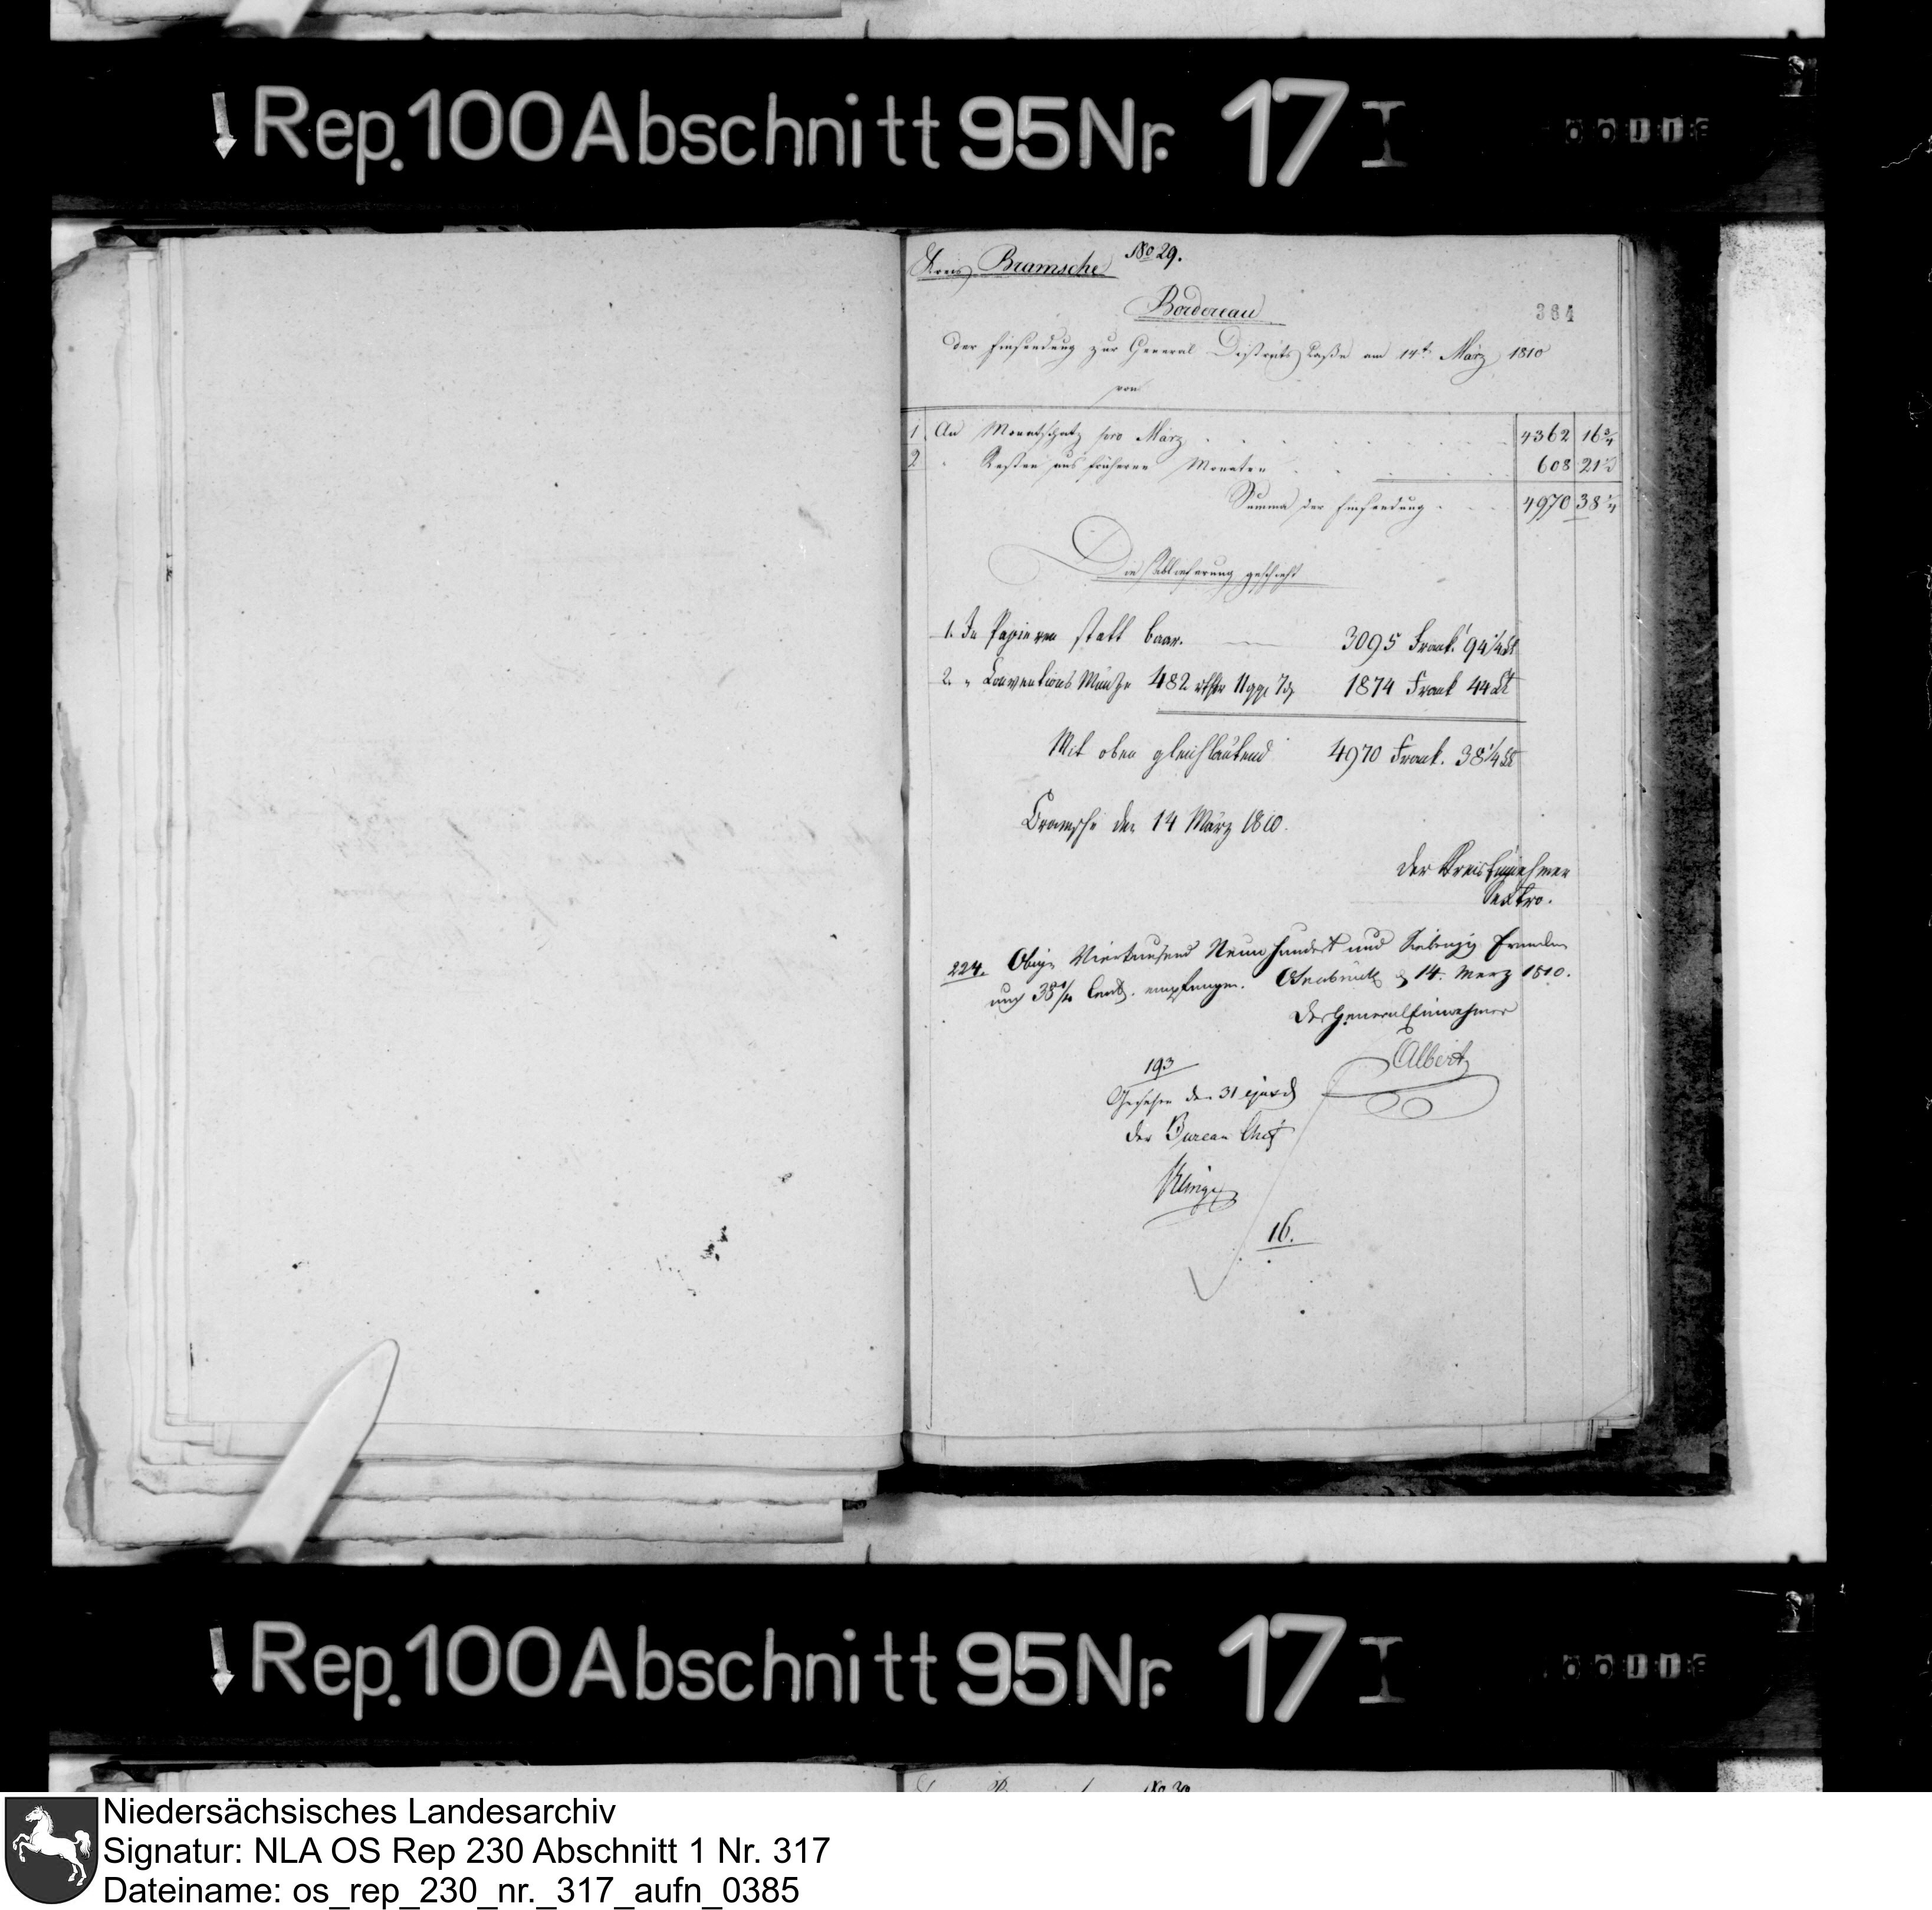 Rep. 100 Abschnitt 95 Nr. 17 I
Kreis Bramsche No 29.
Bordereau
364
der Einsendung zur General Distrikts Caße am 14t. März 1810
von
1. An Monatschatz pro März 4362 16 3/4
2 " Resten aus früheren Monaten 608 21 1/2
Summa der Einsendung 4970 38 1/4
Die Ablieferung geschieht
1. In Papieren statt baar. 3095 Frank. 94 1/4 Ct
2. " Conventions Münze 482 rthlr 11 ggr 7 d 1874 Frank 44 Ct
Mit oben gleichlautend 4970 Frank. 38 1/4 Ct
Bramsche den 14 März 1810.
Der Kreis Einnehmer
224. Obige Viertausend Neun hundert und Siebenzig Franken
und 38 1/4 Cent. empfangen. Osnabrück d 14. Merz 1810.
Der General Einnehmer
Albert
193
Gesehen den 31 ejusd
der Bureau Chef
16.
Rep. 100 Abschnitt 95 Nr. 17 I
No 30
Niedersächsisches Landesarchiv
Signatur: NLA OS Rep 230 Abschnitt 1 Nr. 317
Dateiname: os_rep_230_nr._317_aufn_0385